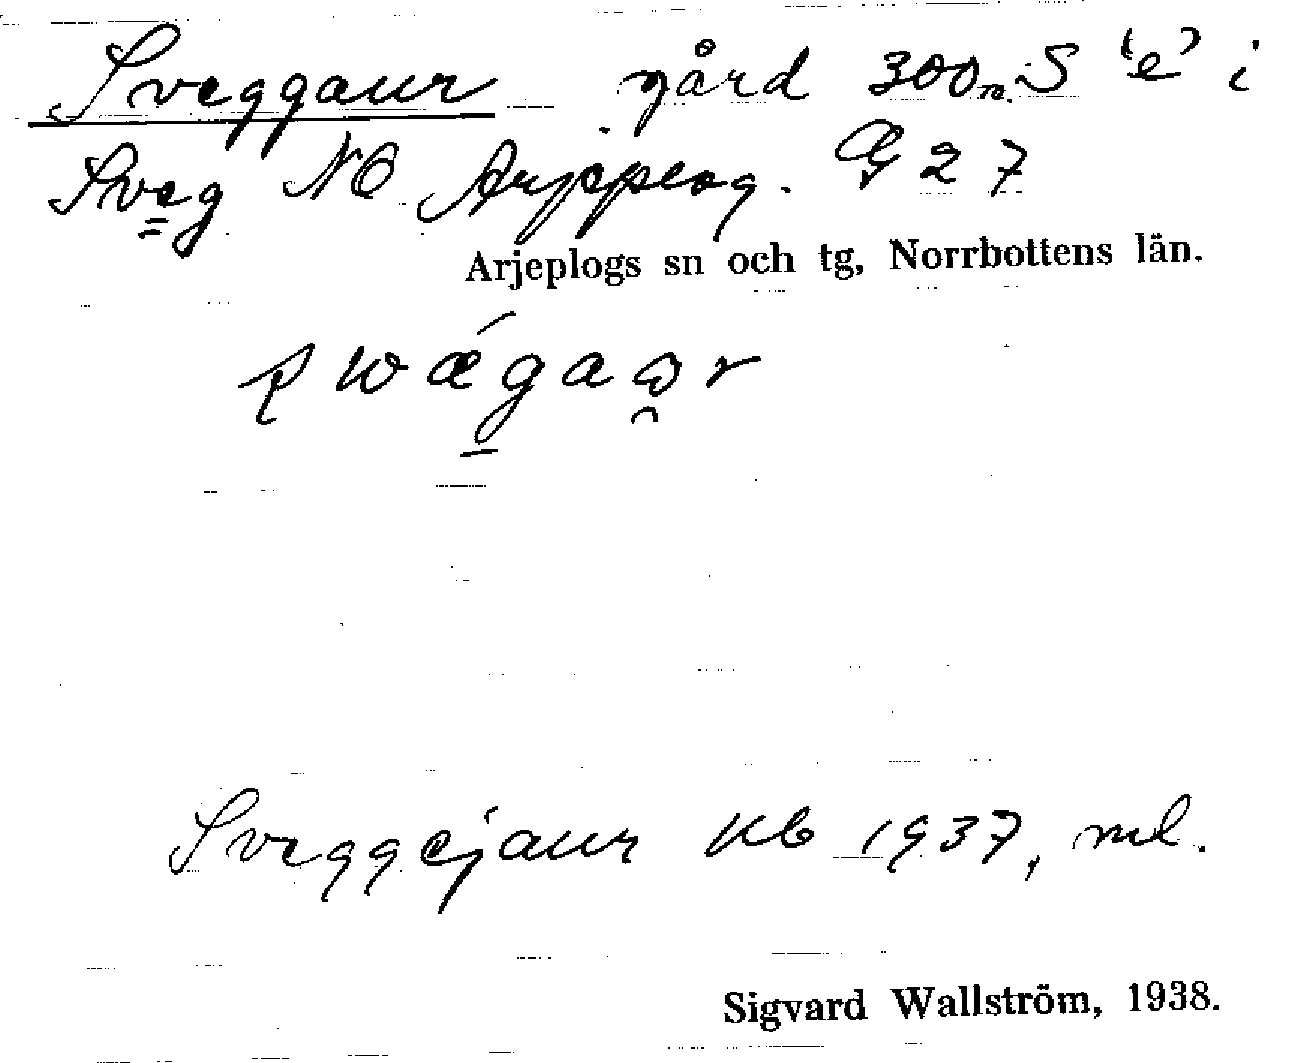 Sveggaur gård 300m S 'e' i
Sveg NO Arjeplog. G 27
Arjeplogs sn och tg, Norrbottens län.
Sveggejaur Kb 1937, ml.
Sigvard Wallström, 1938.